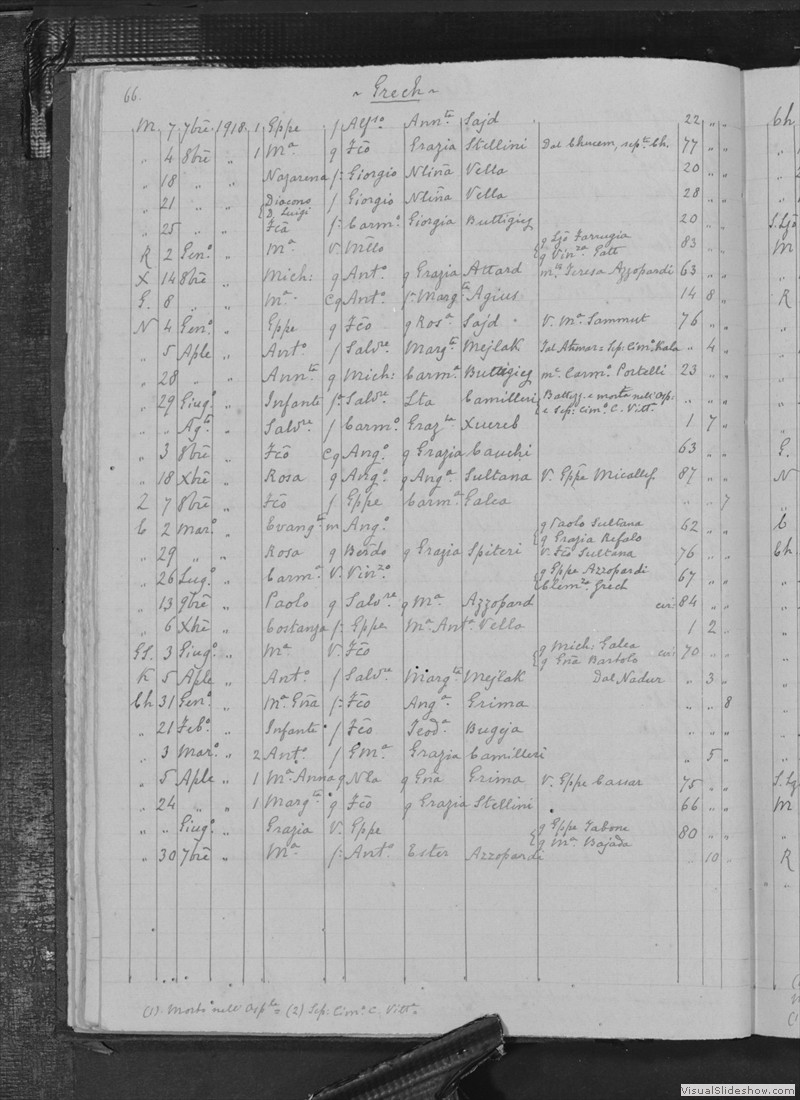 66. ~ Grech ~
M. 7 7bre 1918 1 Eppe f Alfso Annta Sajd 22 " "
" 4 8bre " 1 Ma g Fco Grazia Stellini Dal Chucem, septa Ch. 77 " "
" 18 " " Nazarena f: Giorgio Ntlina Vella 20 " "
" 21 " " Diacono D. Luigi f Giorgio Ntlina Vella 28 " "
" 25 " " Fca f: Carmo Giorgia Buttigieg 20 " "
R 2 Geno " Ma V. Mllo g Ljo Farrugia g Vinza Gatt 83 " "
X 14 8bre " Mich: g Anto g Grazia Attard mto Teresa Azzopardi 63 " "
G. 8 " " Ma Cg Anto f: Margta Agius 14 8 "
N 4 Geno " Eppe g Fco g Rosa Sajd V. Ma Sammut 76 " "
" 5 Aple " Anto f Salvre Margta Mejlak " 4 "
" 28 " " Annta g Mich: Carma Buttigieg ma Carmo Portelli 23 " "
" 29 Giugo " Infante f: Salvre Lta Camilleri Battezz. e morta nell'Osp: e Sep: Cimo C. Vitta " " "
" " Agto " Salvre f Carmo Grazta Xuereb 1 7 "
" 3 8bre " Fco Cg Ango g Grazia Cauchi 63 " "
" 18 Xbre " Rosa g Ango g Anga Sultana V. Eppe Micallef 87 " "
Z 7 8bre " Fco f Eppe Carma Galea " " 7
C 2 Maro " Evangta m Ango g Paolo Sultana g Grazia Refalo 62 " "
" 29 " " Rosa g Berdo g Grazia Spiteri V. Fco Sultana 76 " "
" 26 Lugo " Carma V. Vinzo g Eppe Azzopardi Clemza Grech 67 " "
" 13 9bre " Paolo g Salvre g Ma Azzopard cir: 84 " "
" 6 Xbre " Costanza f: Eppe Ma Anta Vella 1 2 "
GL. 3 Giugo " Ma V. Fco g Mich: Galea g Gna Bartolo cir: 70 " "
K 5 Aple " Anto f Salvre Margta Mejlak Dal Nadur " 3 "
Ch 31 Geno " Ma Gna f: Fco Anga Grima " " 8
" 21 Febo " Infante f Fco Teoda Bugeja " " "
" 3 Maro " 2 Anto f Gma Grazia Camilleri " 5 "
" 5 Aple " 1 Ma Anna g Nla g Gna Grima V. Eppe Cassar 75 " "
" 24 " " 1 Margta g Fco g Grazia Stellini 66 " "
" " Giugo " Grazia V. Eppe g Eppe Tabone g Ma Bajada 80 " "
" 30 7bre " Ma f: Anto Ester Azzopardi " 10 "
(1) Morto nell' Osple = (2) Sep: Cimo C. Vitta
Ch
S. Ljo
M
R
G.
N
C
Ch
S. Lj
M
R
VisualSlideshow.com